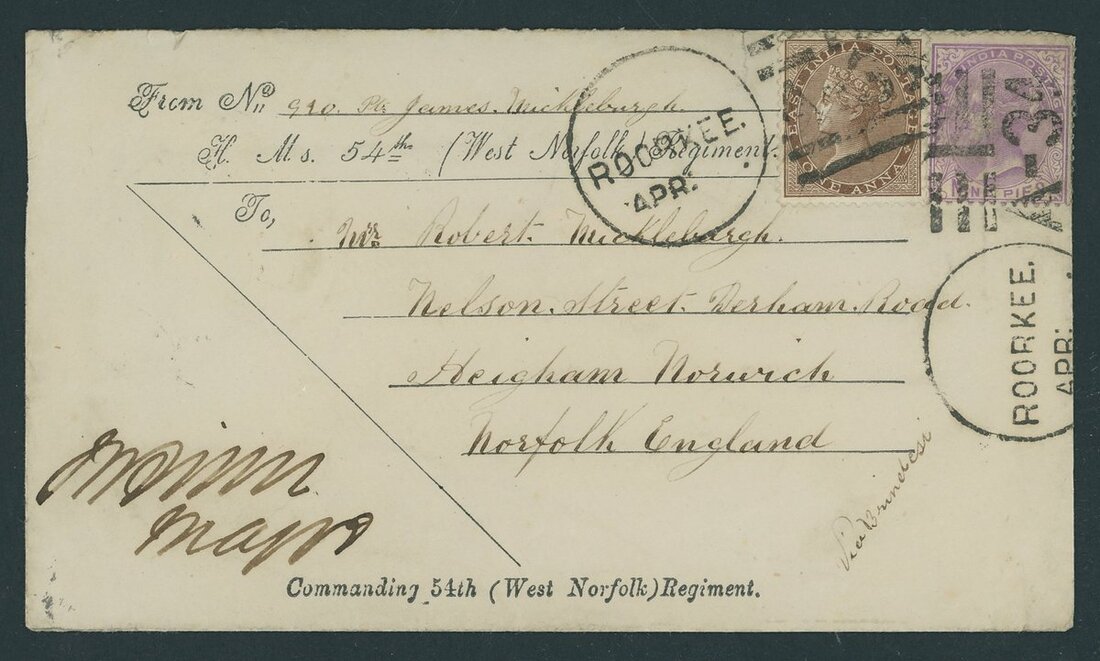 From No. 910. Pte James. Mickleburgh.
H. M's. 54th (West Norfolk) Regiment.
To,
Mr Robert. Mickleburgh.
Nelson. Street. Derham. Road.
Heigham Norwich
Norfolk England
Via Brindesi
Major
Commanding 54th (West Norfolk) Regiment.
ROORKEE.
APR.
EAST INDIA POSTAGE
ONE ANNA
INDIA POSTAGE
NINE PIES
A-30
ROORKEE.
APR.